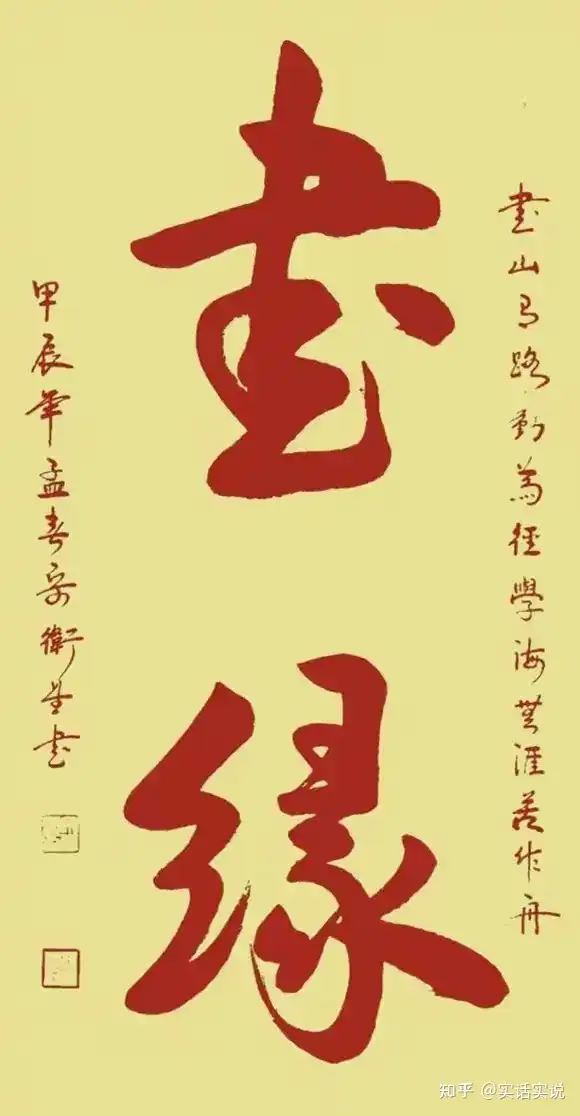 書山有路勤為徑學海無涯苦作舟
書緣
甲辰年孟春衛星書
知乎 @实话实说